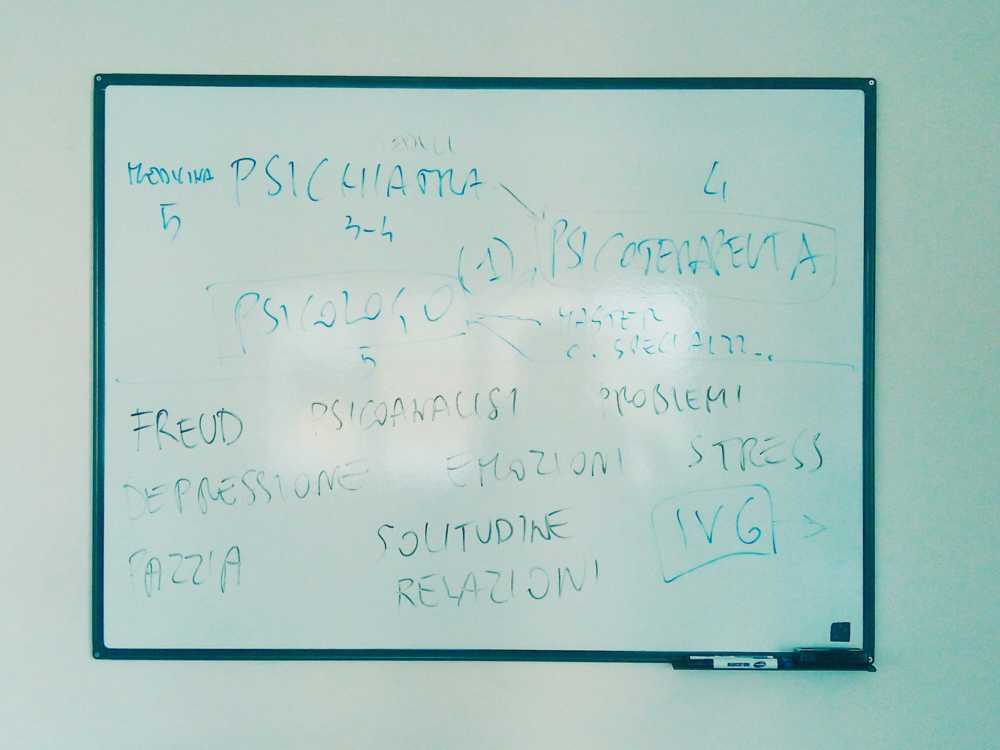 MEDICINA PSICHIATRA 4
5 3-4
(+1) PSICOTERAPEUTA
PSICOLOGO MASTER
5 C. SPECIALIZZ...
FREUD PSICOANALISI PROBLEMI
DEPRESSIONE EMOZIONI STRESS
PAZZIA SOLITUDINE IVG
RELAZIONI